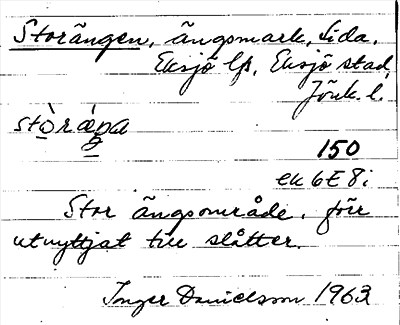 Storängen, ängsmark, Sida,
Eksjö lfs, Eksjö stad,
Jönk. l.
stò̱ræ̀ŋa
150
ek 6E8i
Stor ängsområde, förr
utnyttjat till slåtter.
Inger Danielsson 1963